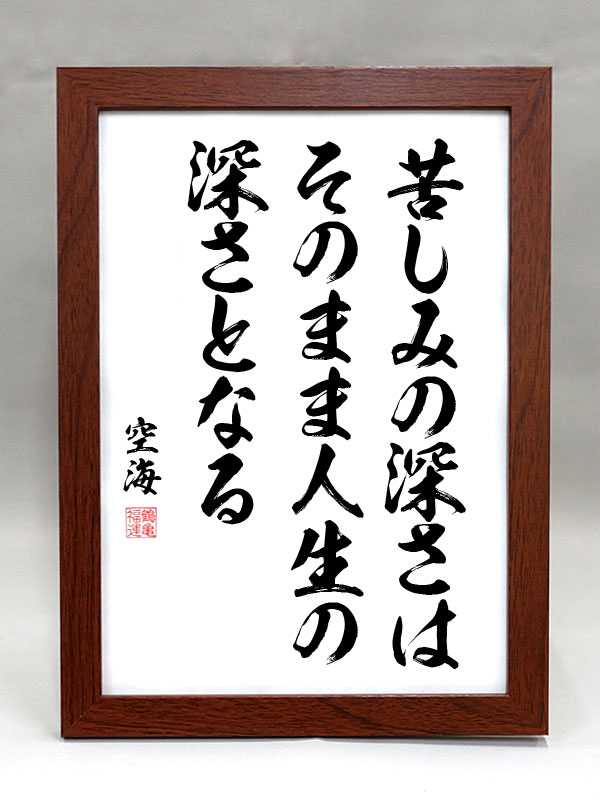 苦しみの深さは
そのまま人生の
深さとなる
空海
鶴亀
福運